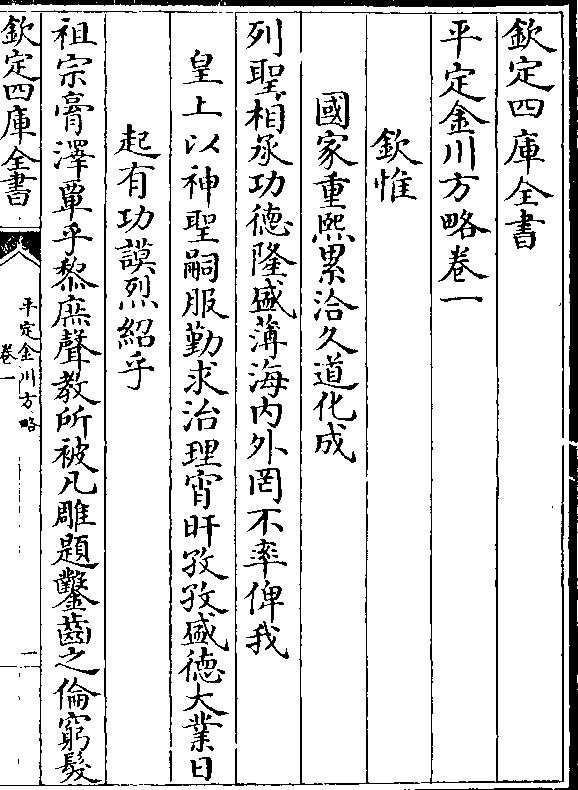 欽定四庫全書
平定金川方略卷一
欽惟
國家重熙累洽久道化成
列聖相承功德隆盛薄海內外罔不率俾我
皇上以神聖嗣服勤求治理宵旰孜孜盛德大業日
起有功謨烈紹乎
祖宗膏澤覃乎黎庶聲教所被凡雕題鑿齒之倫窮髮
欽定四庫全書
平定金川方略
卷一
一